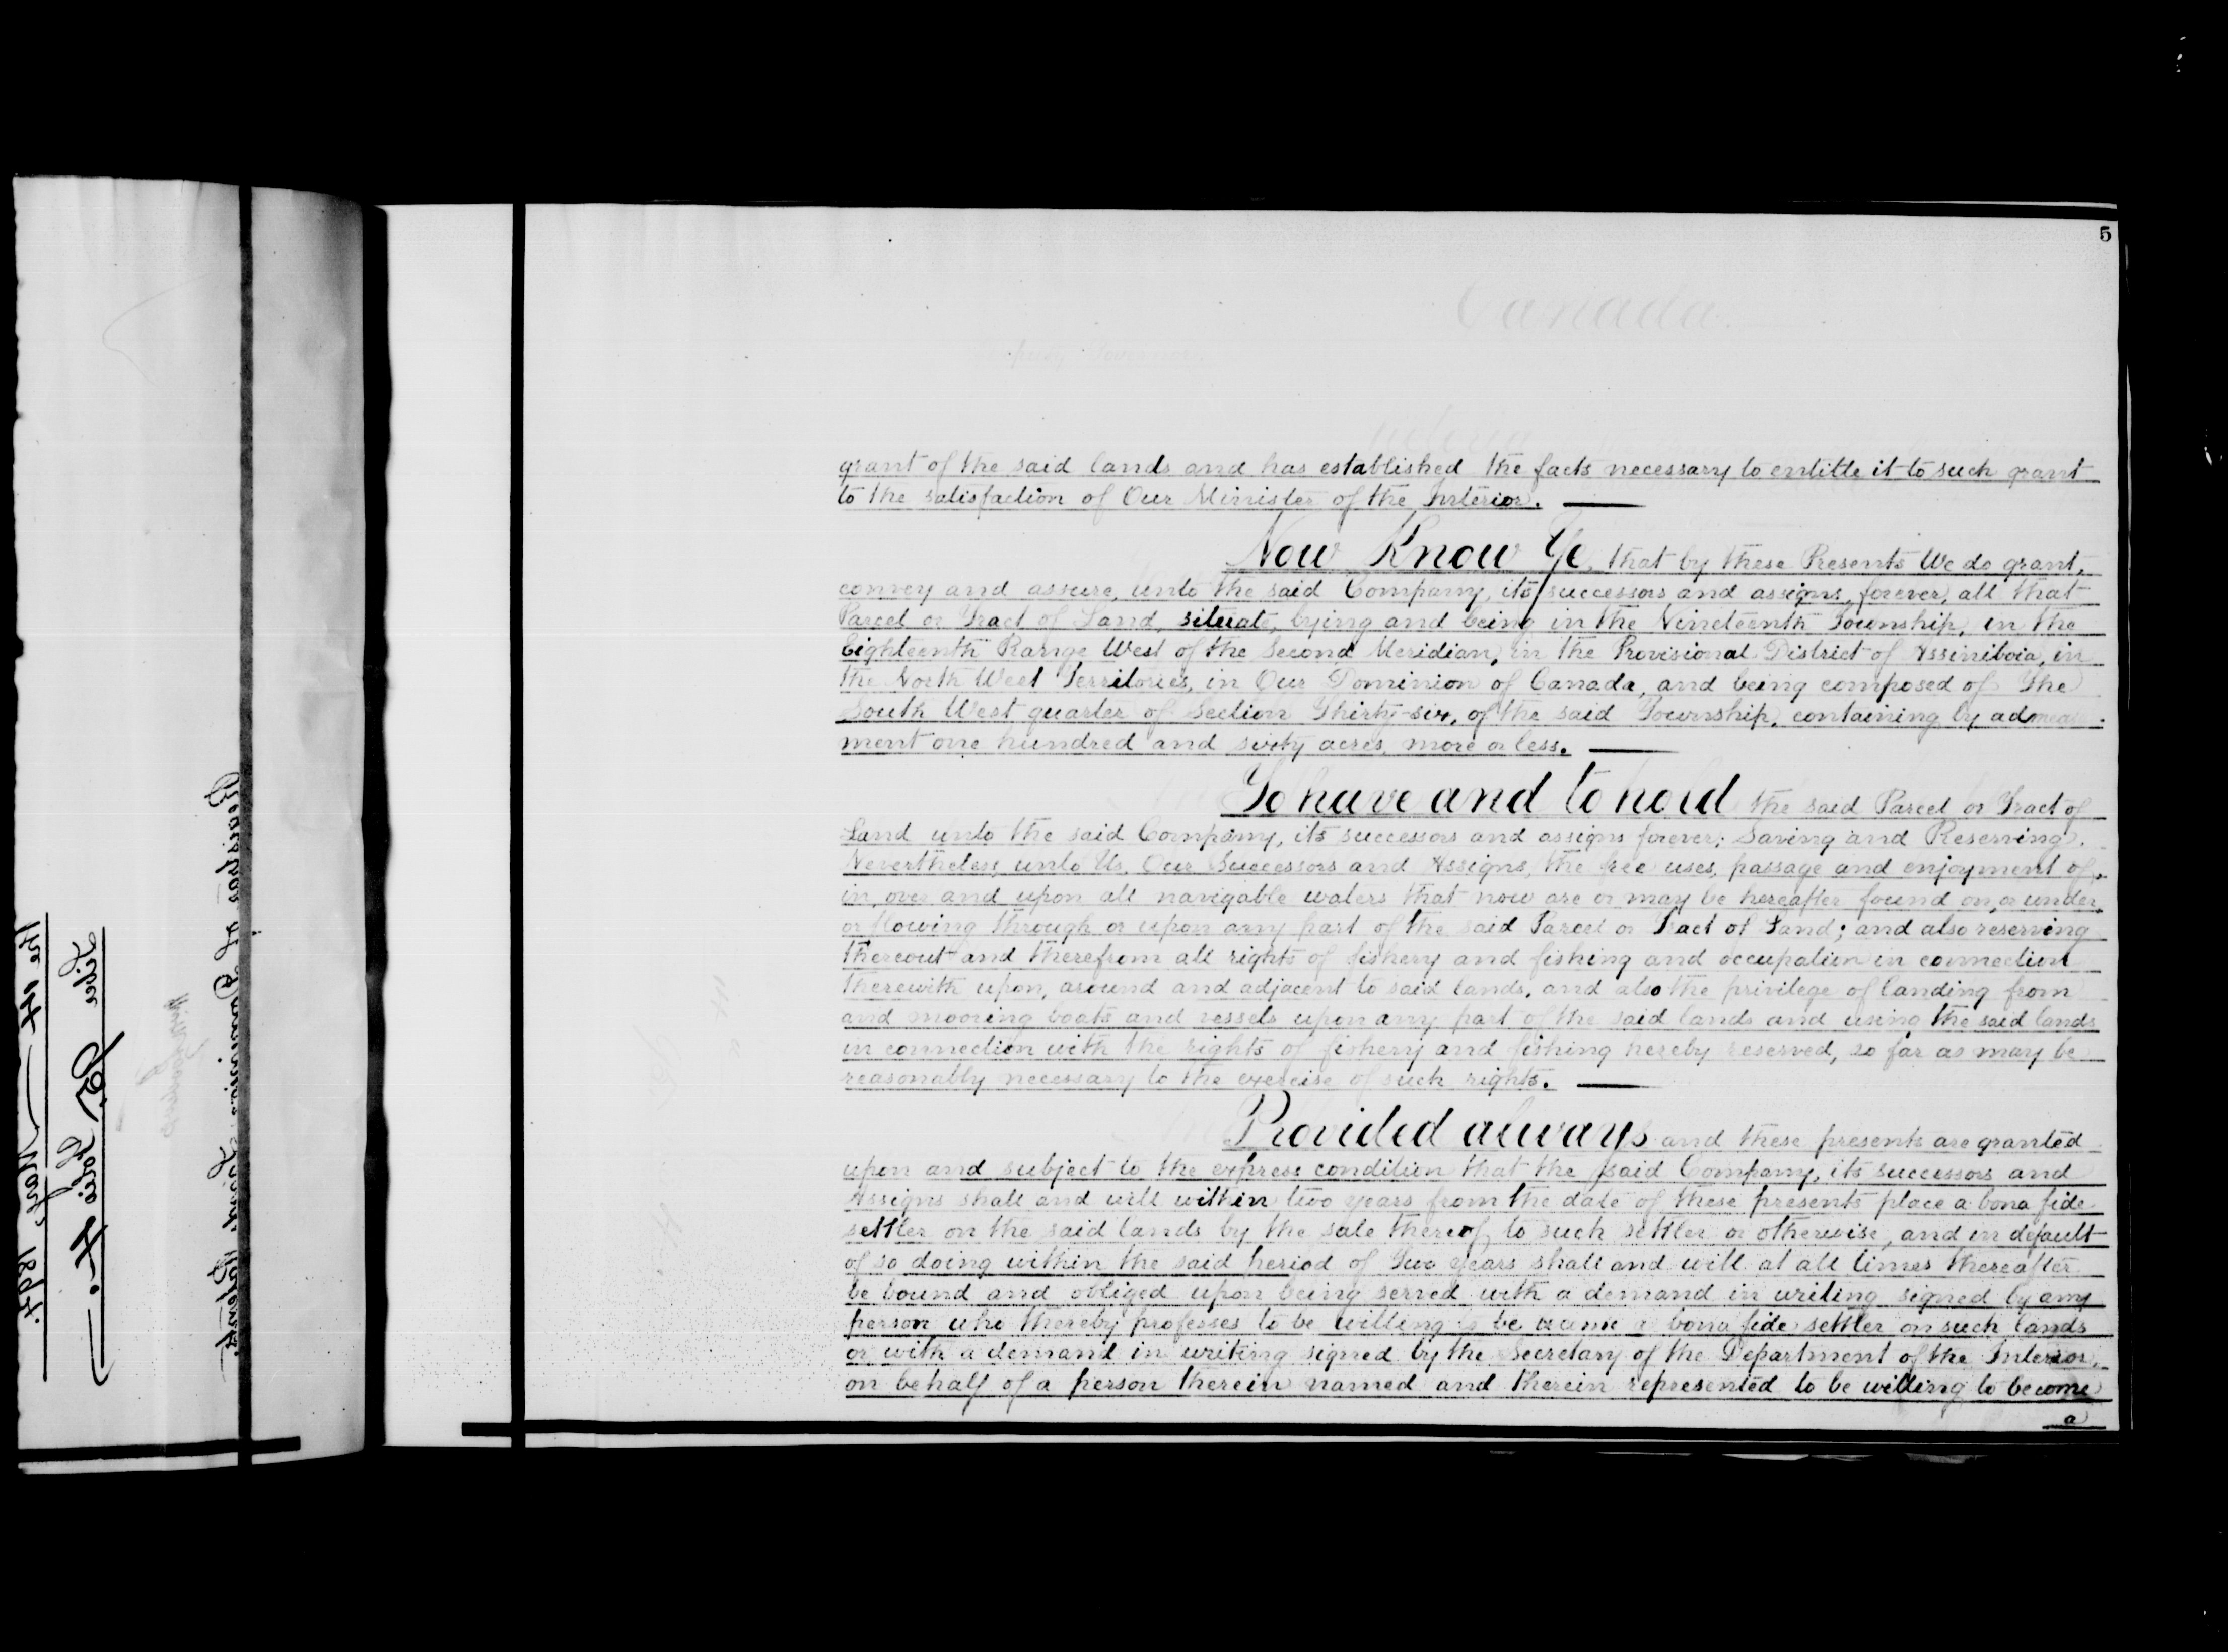 5
grant of the said lands and has established the facts necessary to entitle it to such grant
to the satisfaction of Our Minister of the Interior.
Now Know Ye, that by these Presents We do grant,
convey and assure, unto the said Company, its successors and assigns, forever, all that
Parcel or Tract of Land, situate, lying and being in the Nineteenth Township, in the
Eighteenth Range West of the Second Meridian, in the Provisional District of Assiniboia, in
the North West Territories, in Our Dominion of Canada, and being composed of The
South West quarter of Section Thirty-six, of the said Township, containing by admeasure-
ment one hundred and sixty acres, more or less.
To have and to hold the said Parcel or Tract of
Land unto the said Company, its successors and assigns forever; Saving and Reserving,
Nevertheless, unto Us, Our Successors and Assigns, the free uses, passage and enjoyment of,
in, over and upon all navigable waters that now are or may be hereafter found on, or under,
or flowing through or upon any part of the said Parcel or Tract of Land; and also reserving
thereout and therefrom all rights of fishery and fishing and occupation in connection
therewith upon, around and adjacent to said lands, and also the privilege of landing from
and mooring boats and vessels upon any part of the said lands and using the said lands
in connection with the rights of fishery and fishing hereby reserved, so far as may be
reasonably necessary to the exercise of such rights.
Provided always and these presents are granted
upon and subject to the express condition that the said Company, its successors and
Assigns shall and will within two years from the date of these presents place a bona fide
settler on the said lands by the sale thereof to such settler or otherwise, and in default
of so doing within the said period of Two years shall and will at all times thereafter
be bound and obliged upon being served with a demand in writing signed by any
person who thereby professes to be willing to become a bona fide settler on such lands
or with a demand in writing signed by the Secretary of the Department of the Interior,
on behalf of a person therein named and therein represented to be willing to become
a